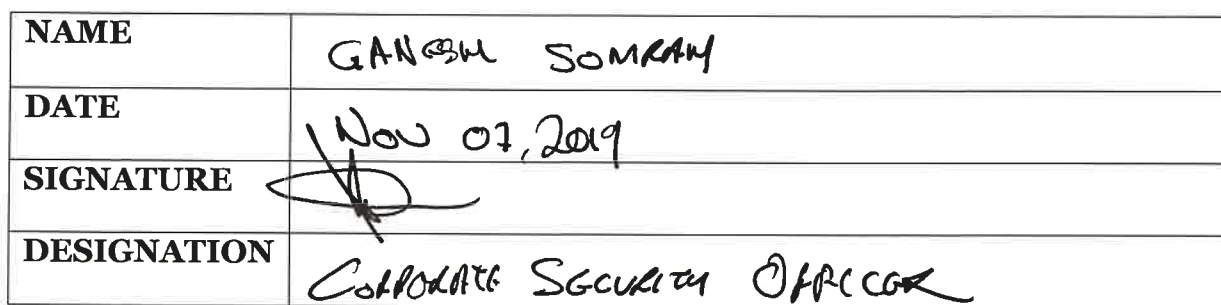 NAME GANESH SOMRAM
DATE Nov 07, 2019
SIGNATURE
DESIGNATION CORPORATE SECURITY OFFICER